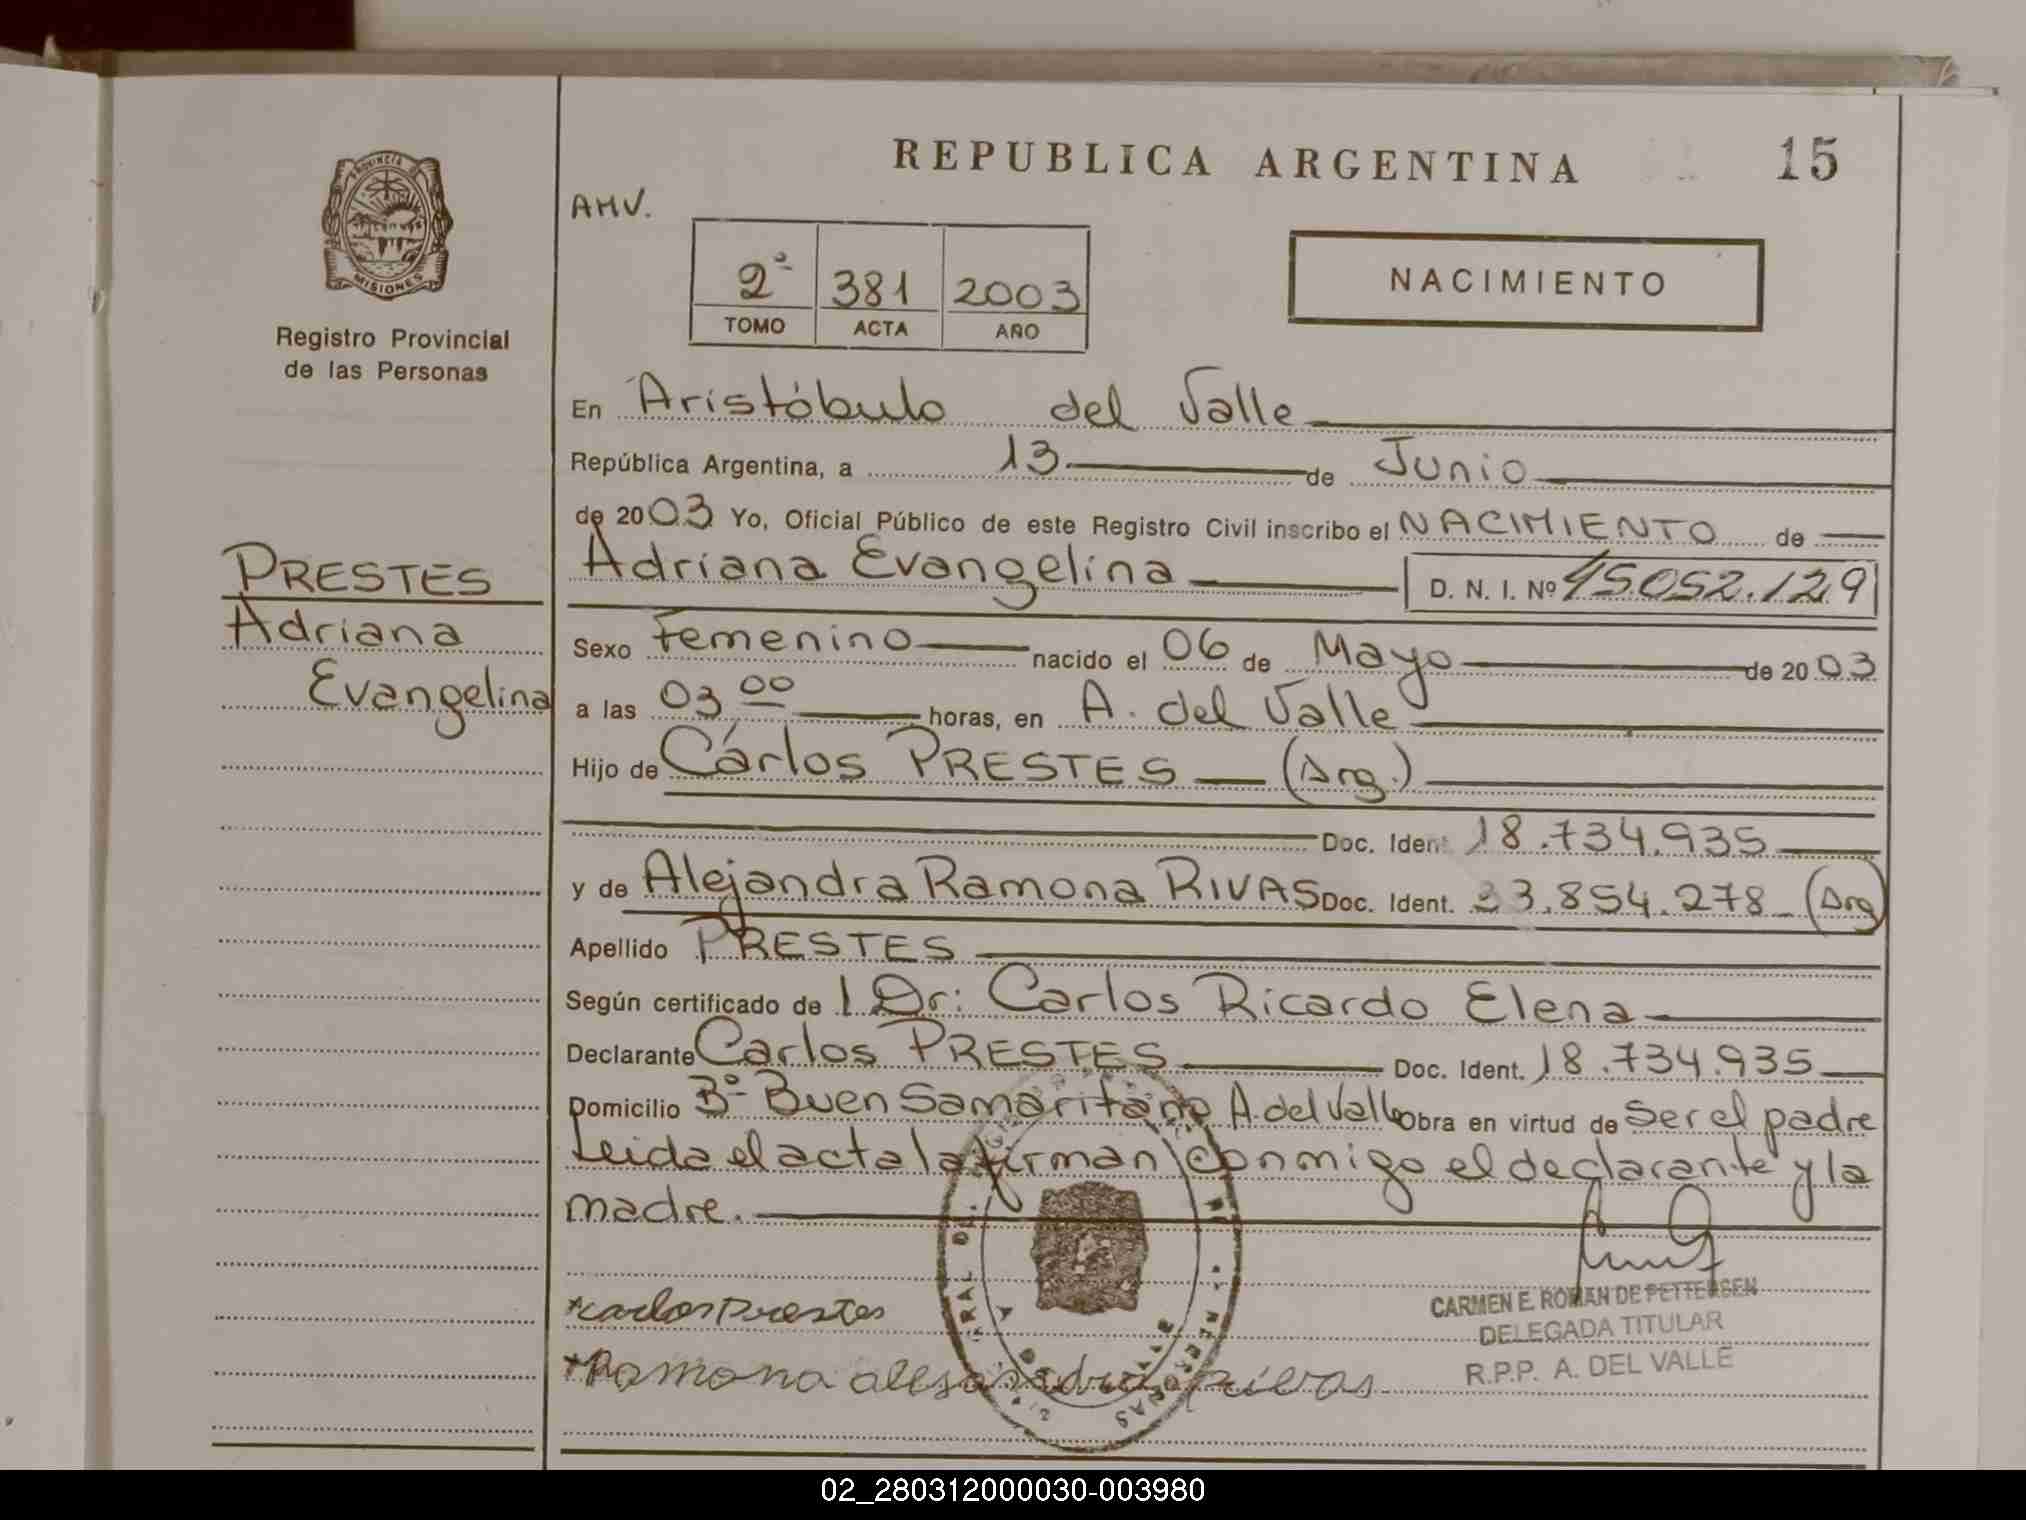 REPUBLICA ARGENTINA 15
PROVINCIA
MISIONES
Registro Provincial
de las Personas
AMV.
2º 381 2003
TOMO ACTA AÑO
NACIMIENTO
PRESTES
Adriana
Evangelina
En Aristóbulo del Valle
República Argentina, a 13 de Junio
de 2003 Yo, Oficial Público de este Registro Civil inscribo el NACIMIENTO de
Adriana Evangelina D. N. I. Nº 45.052.129
Sexo Femenino nacido el 06 de Mayo de 2003
a las 03 00 horas, en A. del Valle
Hijo de Cárlos PRESTES (Arg.)
Doc. Ident. 18.734.935
y de Alejandra Ramona RIVAS Doc. Ident. 33.854.278 (Arg
Apellido PRESTES
Según certificado de l Dr: Carlos Ricardo Elena
Declarante Carlos PRESTES Doc. Ident. 18.734.935
Domicilio Bº Buen Samaritano A. del Valle Obra en virtud de ser el padre
Leida el acta la firman conmigo el declarante y la
madre.
carlos Prestes
Ramona alejandra rivas
CARMEN E. ROMAN DE PETTERSEN
DELEGADA TITULAR
R.P.P. A. DEL VALLE
02_280312000030-003980